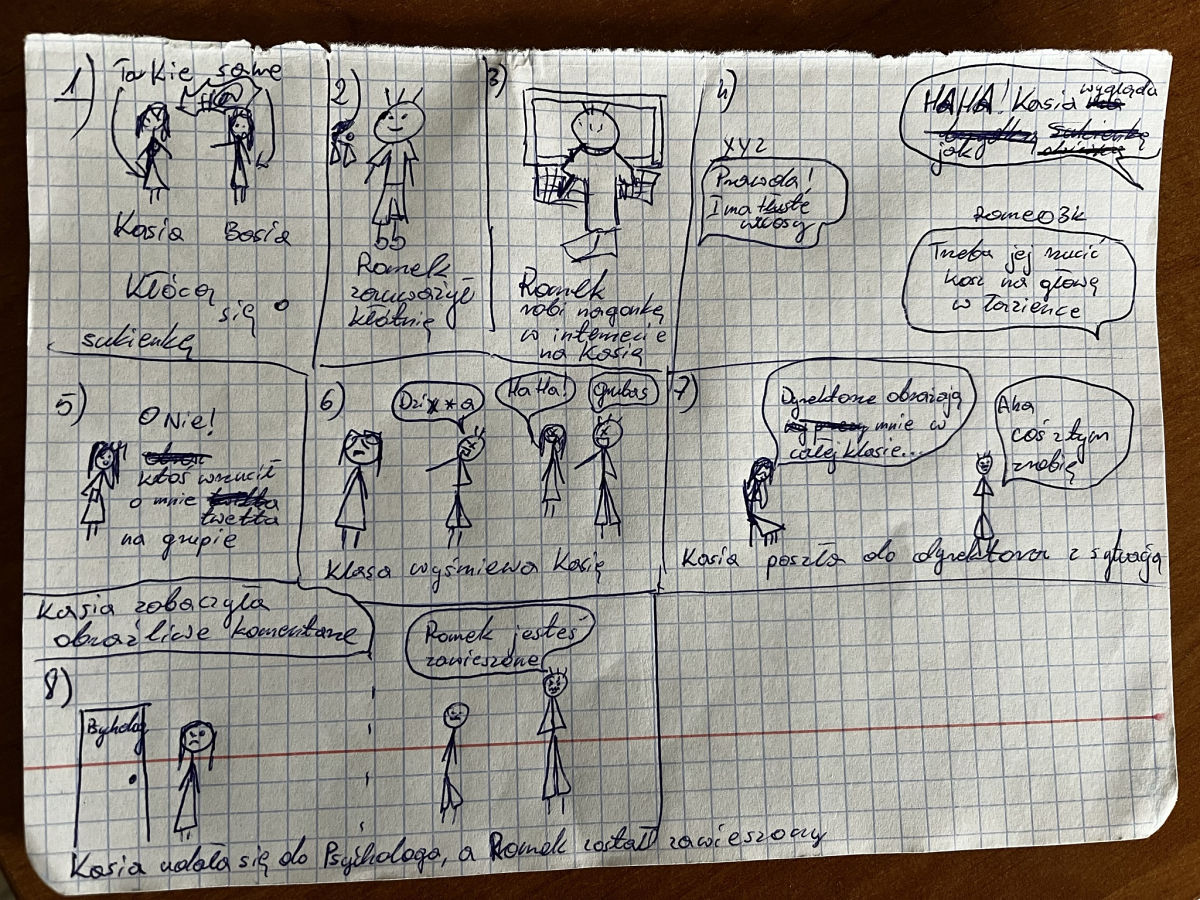 1)
Takie same
Kasia Basia
Kłócą
się o
sukienkę
2)
Romek
zauważył
kłótnię
3)
Romek
robi nagonkę
w internecie
na Kasią
4)
HAHA! Kasia wygląda
jak
XYZ
Prawda!
I ma tłuste
włosy
Romeo3k
Trzeba jej rzucić
kosz na głowę
w łazience
5)
O Nie!
ktoś wrzucił
o mnie
twetta
na grupie
Kasia zobaczyła
obraźliwe komentarze
6)
Dzi**a
HaHa!
Grubas
Klasa wyśmiewa Kasię
7)
Dyrektorze obrażają
mnie w
całej klasie...
Aha
coś z tym
zrobię
Kasia poszła do dyrektora z sytuacją
8)
Psycholog
Romek jesteś
zawieszony
Kasia udała się do Psychologa, a Romek został zawieszony